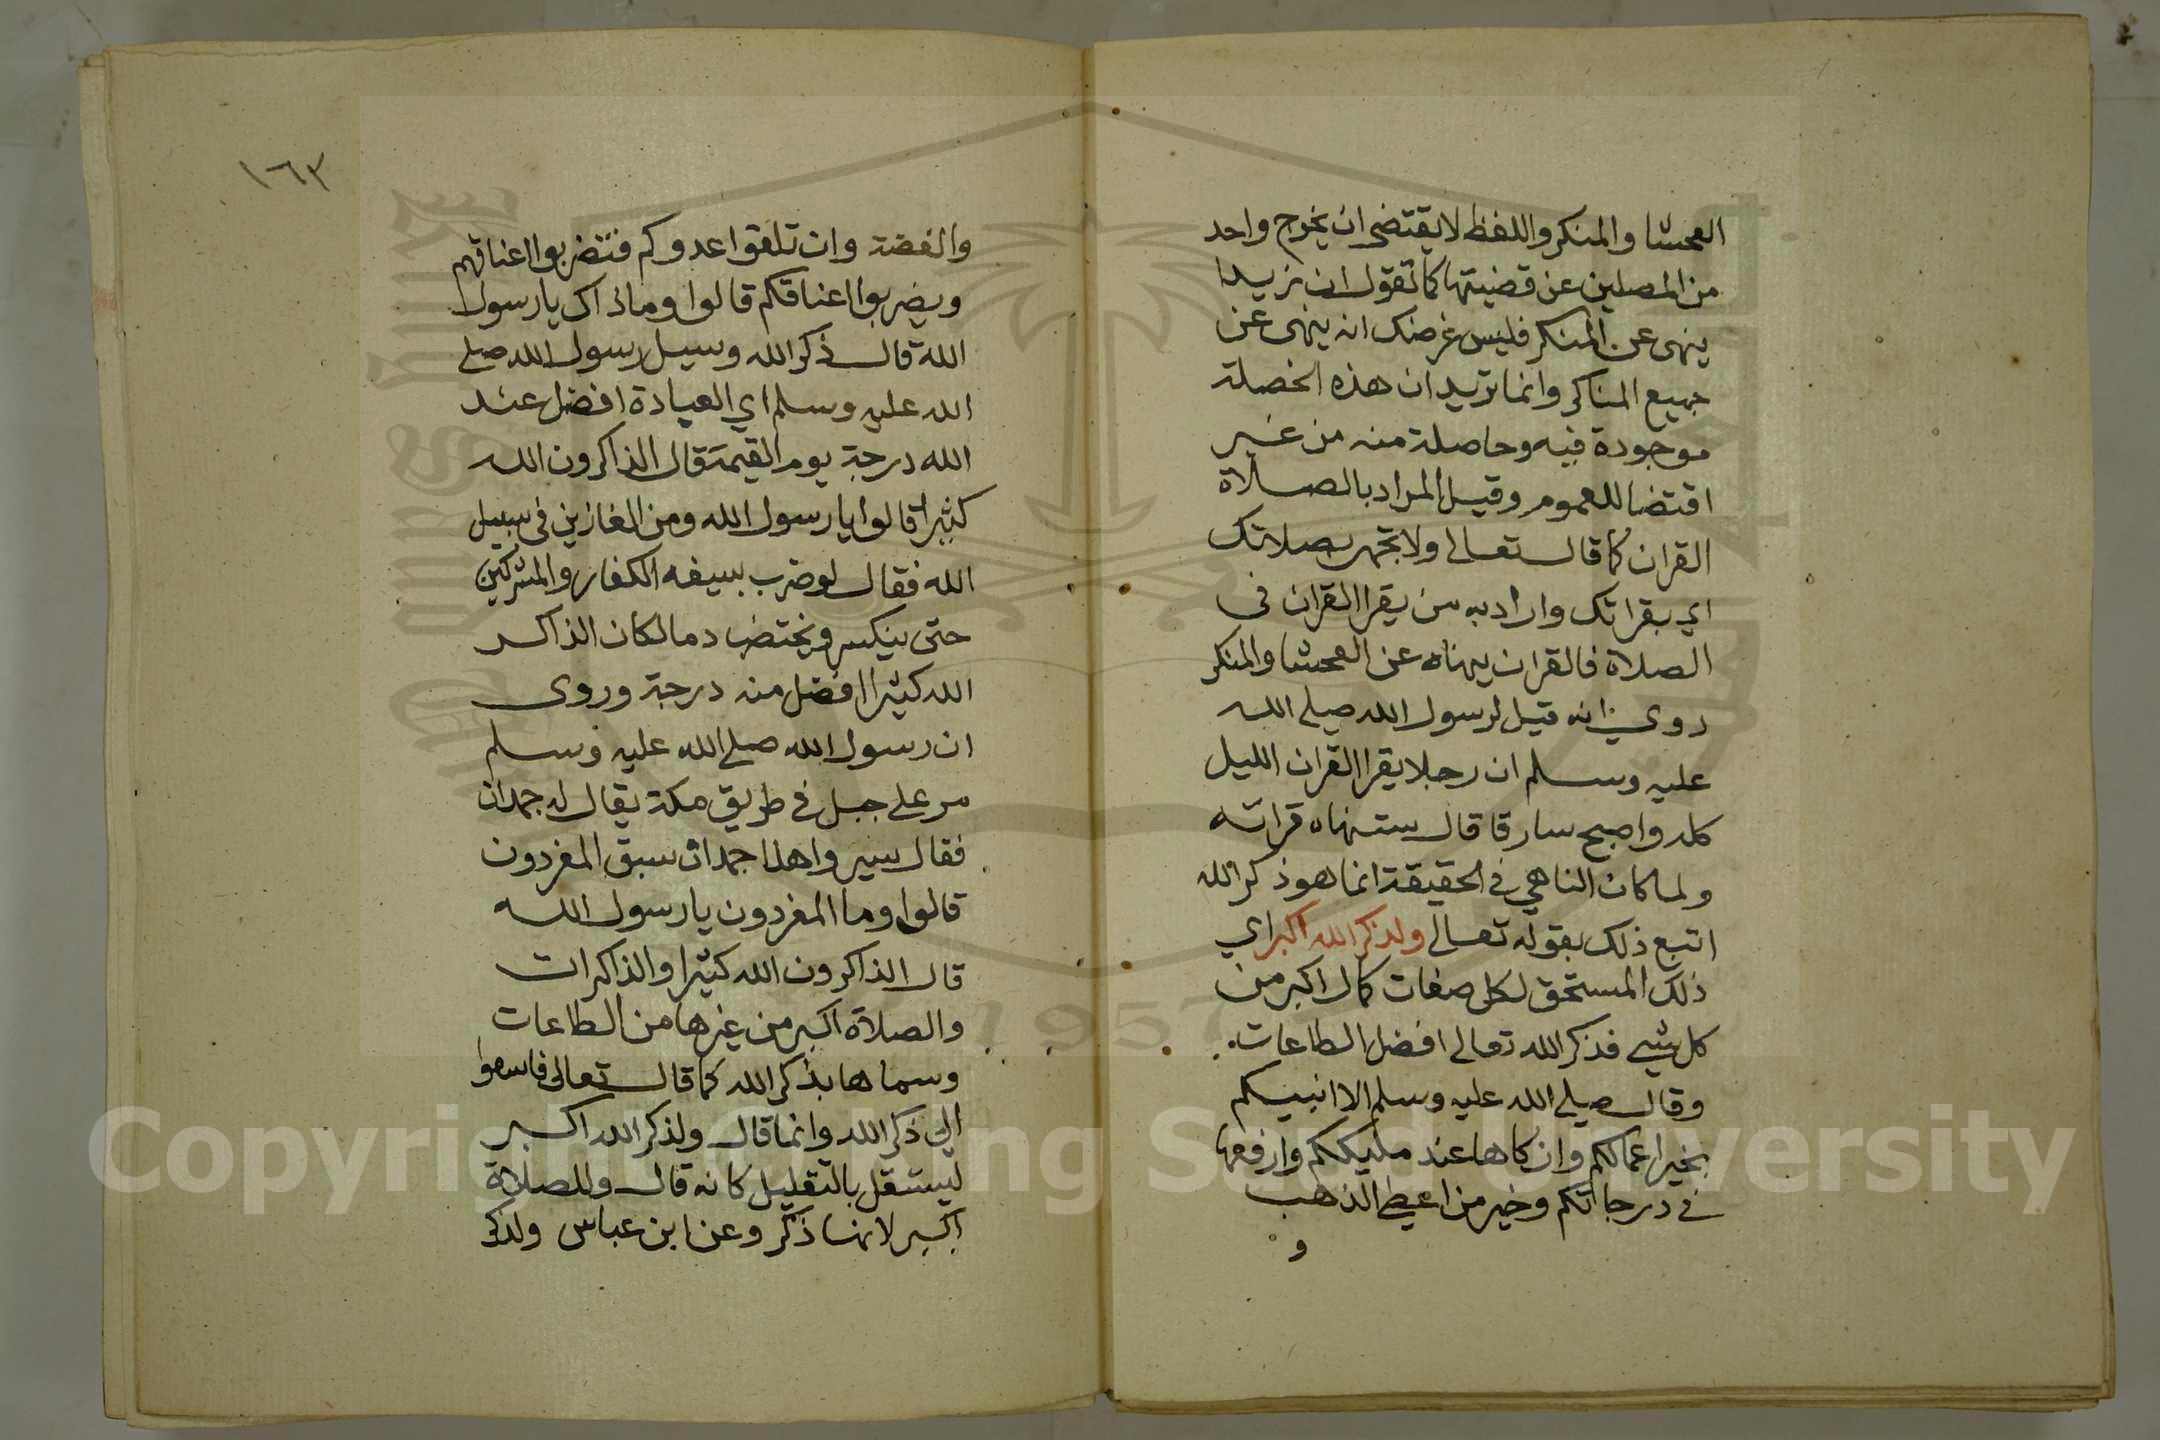 الفحشا والمنكر واللفظ لا يقتضى ان يخرج واحد
من المصلين عن قضيتها كما تقول ان زيدا
ينهى عن المنكر فليس غرضك انه ينهى عن
جميع المناكر وانما تريد ان هذه الخصلة
موجودة فيه وحاصلة منه من غير
اقتضا للعموم وقيل المراد بالصلاة
القران كما قال تعالى ولا تجهر بصلاتك
اي بقراتك واراد به من يقرا القران فى
الصلاة فالقران ينهاه عن الفحشا والمنكر
روي انه قيل لرسول الله صلى الله
عليه وسلم ان رجلا يقرا القران الليل
كله واصبح سارقا قال ستنهاه قراته
ولما كان الناهي في الحقيقة انما هو ذكر الله
اتبع ذلك بقوله تعالى ولذكر الله اكبر اي
ذلك المستحق لكل صفات كمال اكبر من
كل شيى فذكر الله تعالى افضل الطاعات
وقال صلى الله عليه وسلم الا انبيكم
بخير اعمالكم وازكاها عند مليككم وارفعها
في درجاتكم وخير من اعطي الذهب
و
١٦٢
والفضة وان تلقوا عدوكم فتضربوا اعناقهم
ويضربوا اعناقكم قالوا وماذاك يا رسول
الله قال ذكر الله وسيل رسول الله صلى
الله عليه وسلم اي العبادة افضل عند
الله درجة يوم القيمة قال الذاكرون الله
كثيرا قالوا يا رسول الله ومن الغازين فى سبيل
الله فقال لو ضرب بسيفه الكفار والمشركين
حتى ينكسر ويختضب دما لكان الذاكر
الله كثيرا افضل منه درجة وروى
ان رسول الله صلى الله عليه وسلم
مر على جبل في طريق مكة يقال له جمدان
فقال سيروا هذا جمدان سبق المفردون
قالوا وما المفردون يا رسول الله
قال الذاكرون الله كثيرا والذاكرات
والصلاة اكبر من غيرها من الطاعات
وسماها بذكر الله كما قال تعالى فاسعوا
الى ذكر الله وانما قال ولذكر الله اكبر
ليستقل بالتعليل كانه قال وللصلاة
اكبر لانها ذكر وعن ابن عباس ولذكر
1957
Copyright © King Saud University